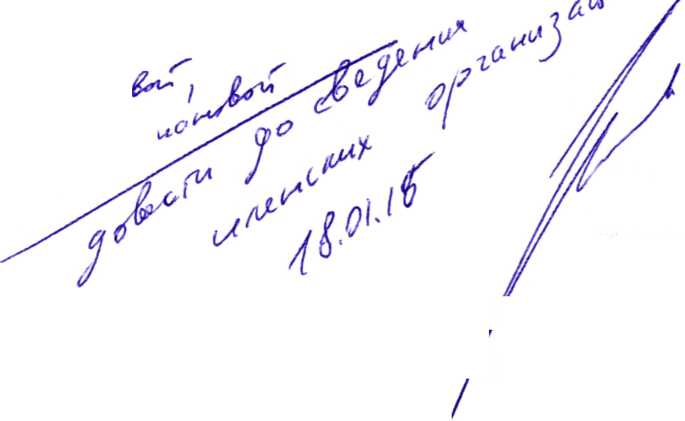 вой,
довести до сведения
членских организац
18.01.18